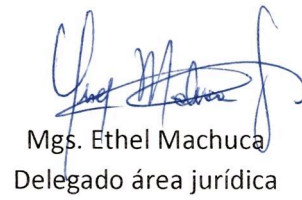 Mgs. Ethel Machuca
Delegado área jurídica